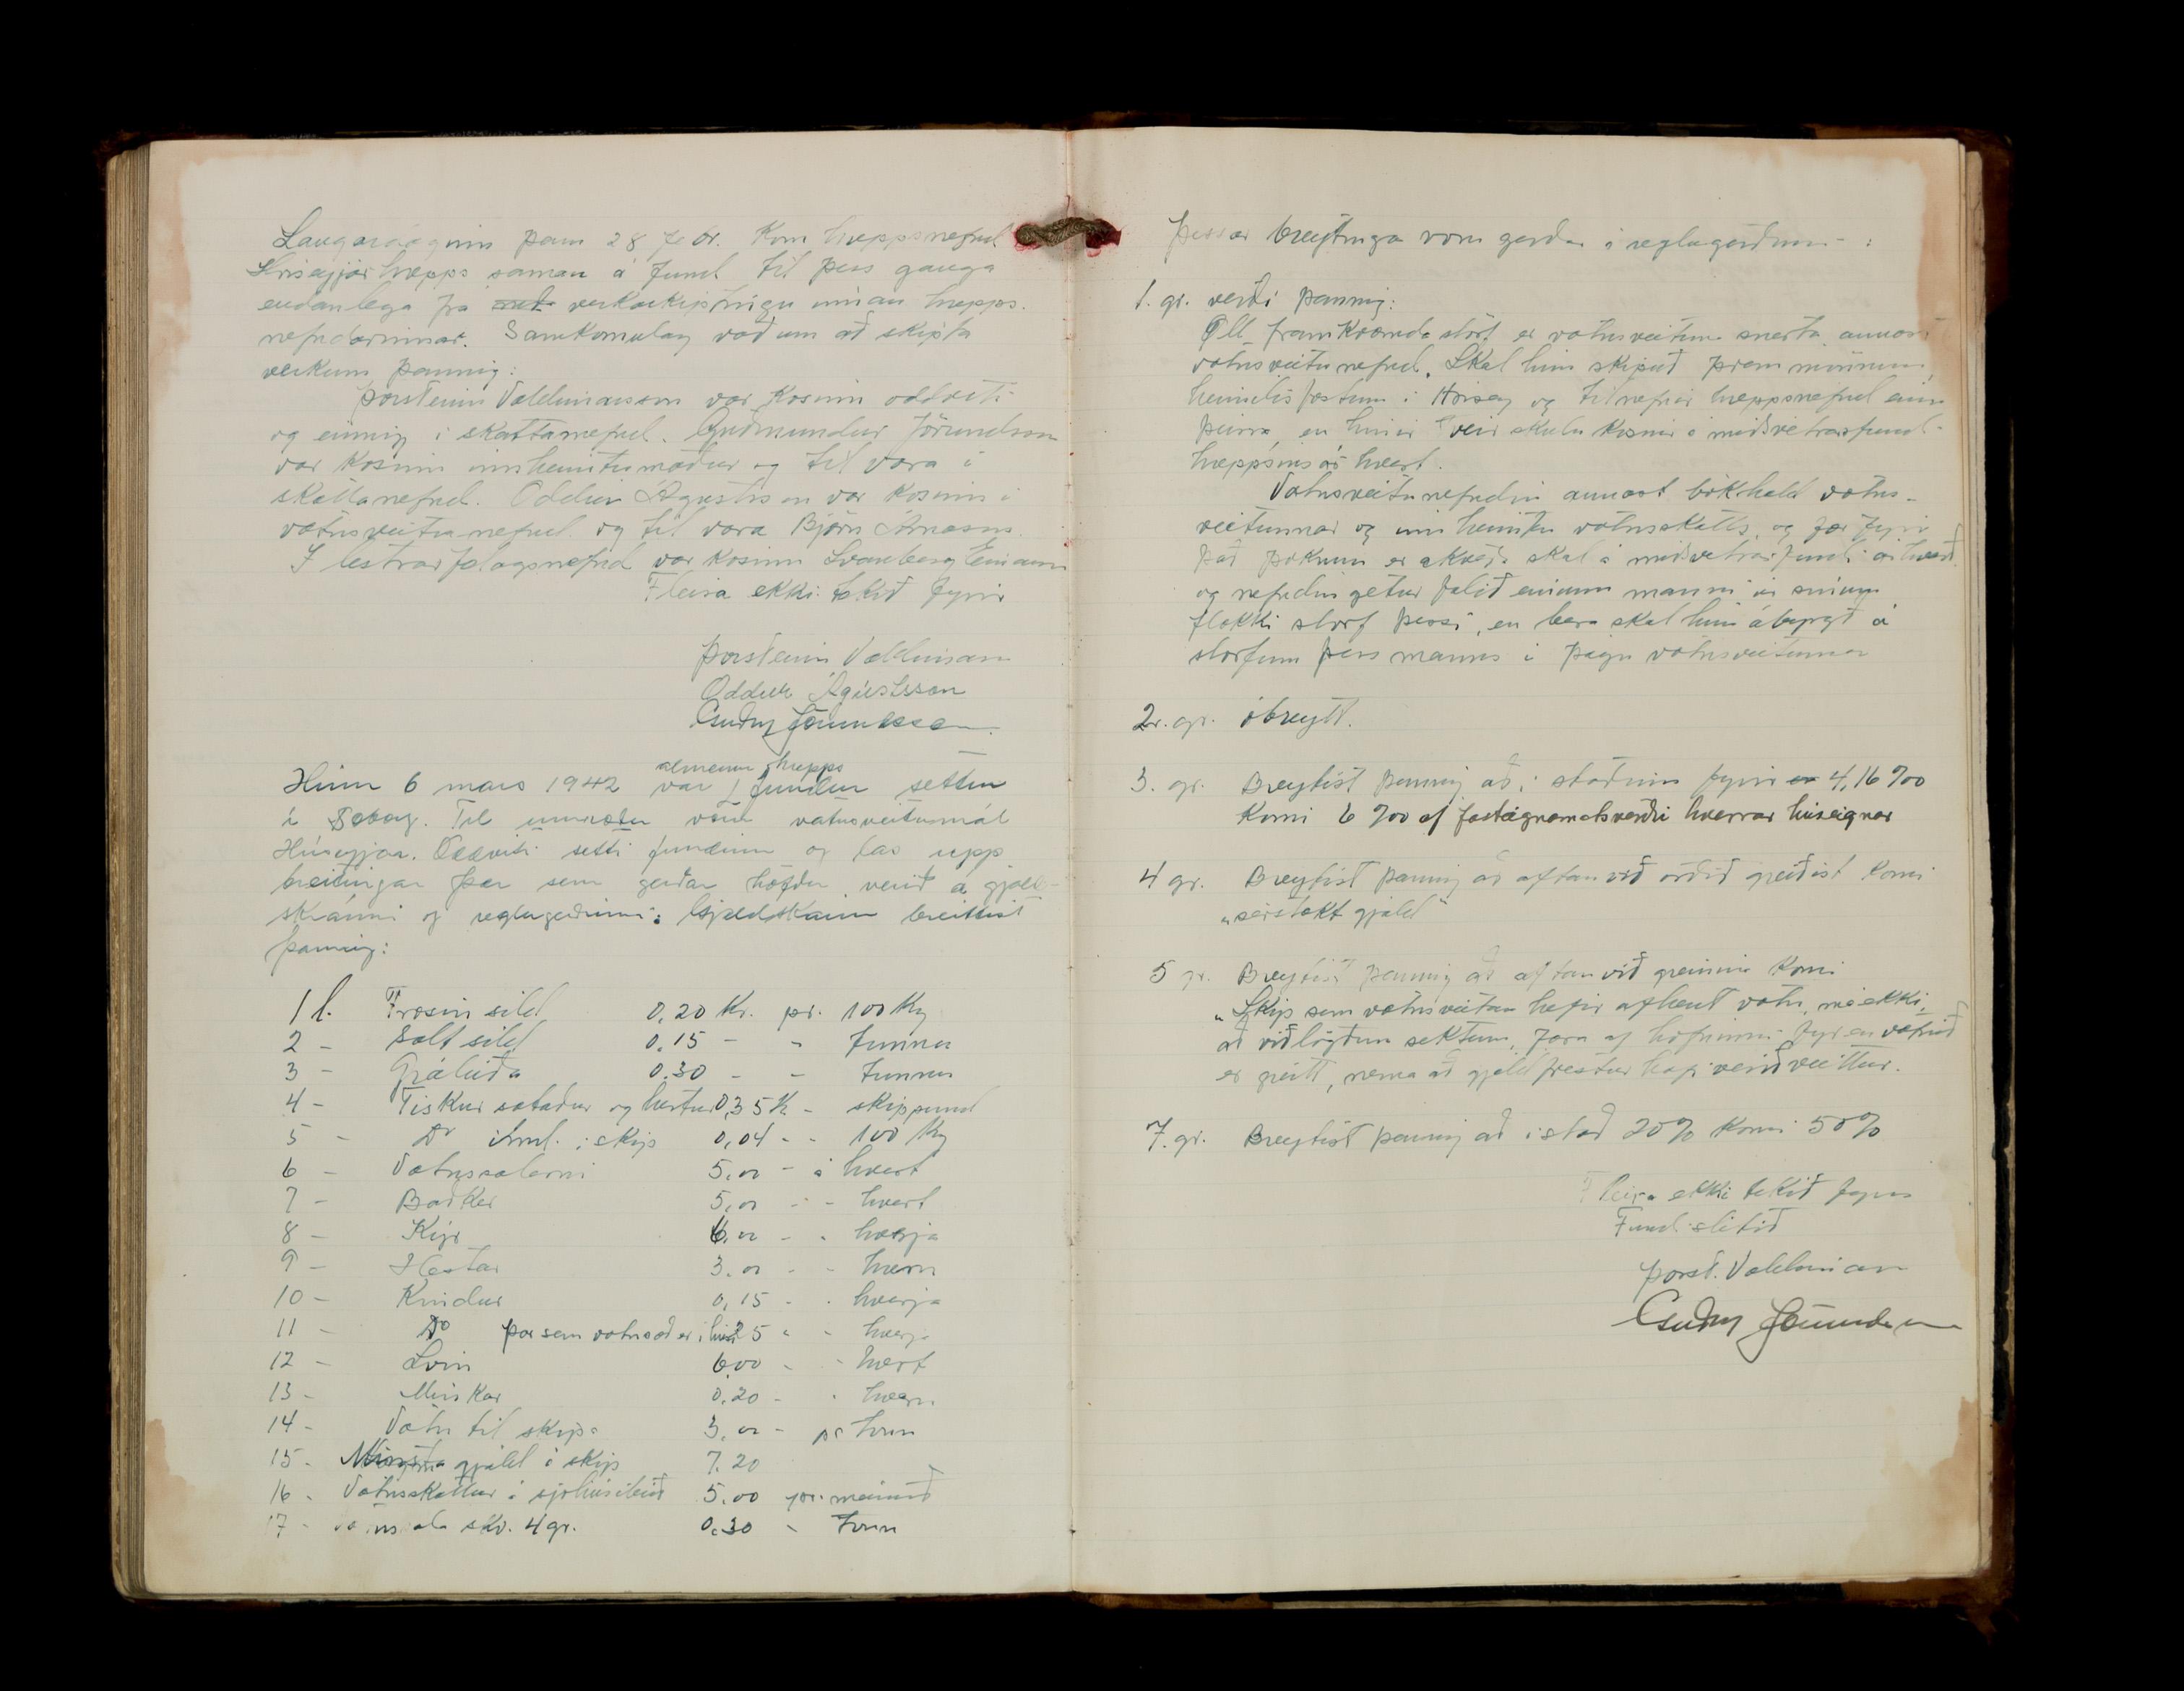 Laugardaginn þann 28 febr. Kom hreppsnefnd
Hríseyjar hrepps saman á fund til þess ganga
endanlega frá verkaskiptingu innan hrepps-
nefndarinnar. Samkomulag varð um að skipta
verkum þannig:
Þorsteinn Valdimarsson var Kosinn oddviti
og einnig í skattanefnd. Guðmundur Jörundsson
var Kosinn innheimtumaður og til vara í
skattanefnd. Oddur Ágústsson var Kosinn í
vatnsveitunefnd og til vara Björn Árnason.
Í lestrarfélagsnefnd var Kosinn Svanberg Einarss
Fleira ekki tekið fyrir
Þorsteinn Valdimarss
Oddur Ágústsson
Guðm Jörundsson
almenn hrepps
Hinn 6 mars 1942 var fundur settur
í Sæborg. Til umræðu voru vatnsveitumál
Hríseyjar. Oddviti setti fundinn og las upp
breitingar þær sem gerðar höfðu verið á gjald-
skránni og reglugerðinni: Gjaldskáin breittist
þannig:
1 l. Frosin síld 0,20 Kr. pr. 100 Kg
2 - Salt síld 0.15 - - tunnu
3 - Grálúða 0.30 - - tunnu
4 - Fiskur saltaður og hertur 0,35 K - skippund
5 - Do ísað. í skip 0,04 - - 100 Kg
6 - Vatnssalerni 5,00 - á hvert
7 - Baðker 5,00 - - hvert
8 - Kýr 6.00 - - hverja
9 - Hestar 3.00 - - hvern
10 - Kindur 0,15 - - hverja
11 - Do þar sem vatnsæð er í hús 25 - - hverja
12 - Svín 6,00 - - hvert
13 - Minkar 0.20 - - hvern
14 - Vatn til skipa 3.00 - pr tonn
15 - Minsta gjald í skip 7.20
16 - Vatnsskattur í sjóhúsíbúð 5.00 pr. mánuð
17 - skv. 4 gr. 0.30 - tonn
Þessar breytingar voru gerðar á reglugerðinni - :
1. gr. verði þannig:
Öll framkvæmdastörf er vatnsveituna snerta annast
vatnsveitunefnd. Skal hún skipuð þrem mönnum
heimilisföstum í Hrísey og tilnefnir hreppsnefnd einn
þeirra, en hinir tveir skulu kosnir á miðsvetrarfundi
hreppsins ár hvert.
Vatnsveitunefndin annast bókhald vatns-
veitunnar og innheimtu vatnsskatts, og fær fyrir
það þóknun er ákveða skal á miðsvetrarfundi ár hvert
og nefndin getur falið einum manni úr sínum
flokki störf þessi, en bera skal hún ábyrgð á
störfum þess manns í þágu vatnsveitunnar
2. gr. óbreytt.
3. gr. Breytist þannig að í staðinn fyrir 4,16 %00
Komi 6 %00 af fasteignamatsverði hverrar húseignar
4 gr. Breytist þannig að aftan við orðið greiðist komi
„sérstakt gjald"
5 gr. Breytist þannig að aftan við greinina Komi
„Skip sem vatnsveitan hefir afhent vatn, má ekki,
að viðlögðum sektum, fara af höfninni fyr en vatnið
er greitt, nema að gjaldfrestur hafi verið veittur.
7. gr. Breytist þannig að í stað 20% Komi 50%
Fleira ekki tekið fyrir
Fundi slitið
Þorst. Valdimarss
Guðm Jörundsson